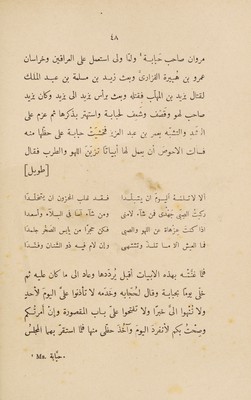 ٤٨
مروان صاحب حبابة ¹ ولمّا ولى استعمل على العراقين وخراسان
عمرو بن هُبيرة الفزارىّ وبعث زيد بن مسلمة بن عبد الملك
لقتال يزيد بن المهلّب فقتله وبعث برأس يزيد الى يزيد وكان يزيد
صاحب لهو وقصف وشغف لحبابة واشتهر بذكرها ثم عزم على
الرشد والتشبّه بعمر بن عبد العزيز فخشيتْ حبابة على حظّها منه
فسألت الاحوص أن يعمل لها أبياتًا تزيّن اللهو والطرب فقال
[طويل]
ألا لا تلمه اليوم ان يتبلّدا فقد غلب المحزون ان يتجلّدا
ركبتُ الصبى جهدى فمن شاء لامنى ومن شاء آسا فى البلاء وأسعدا
اذا كنت عزهاة عن اللهو والصبى فكن حجرًا من يابس الصخر جلمدا
فما العيش الا ما تلذّ وتشتهى وإن لام فيه ذو الشنان وفنّدا
فلمّا غنّته بهذه الابيات أقبل يُردّدها وعاد الى ما كان عليه ثم
خلى يومًا بحبابة وقال لحُجّابه وخدمه لا تأذنوا علىَّ اليوم لأحدٍ
ولا تُنهوا الىّ خبرًا ولا تفتحوا علىّ باب المقصورة وإنْ أمرتُكم
وصِحْتُ بكم لأنفرد اليومَ وآخُذ حظّى منها فلمّا استقرّ بهما المجلسُ
¹ Ms. حبّابة.